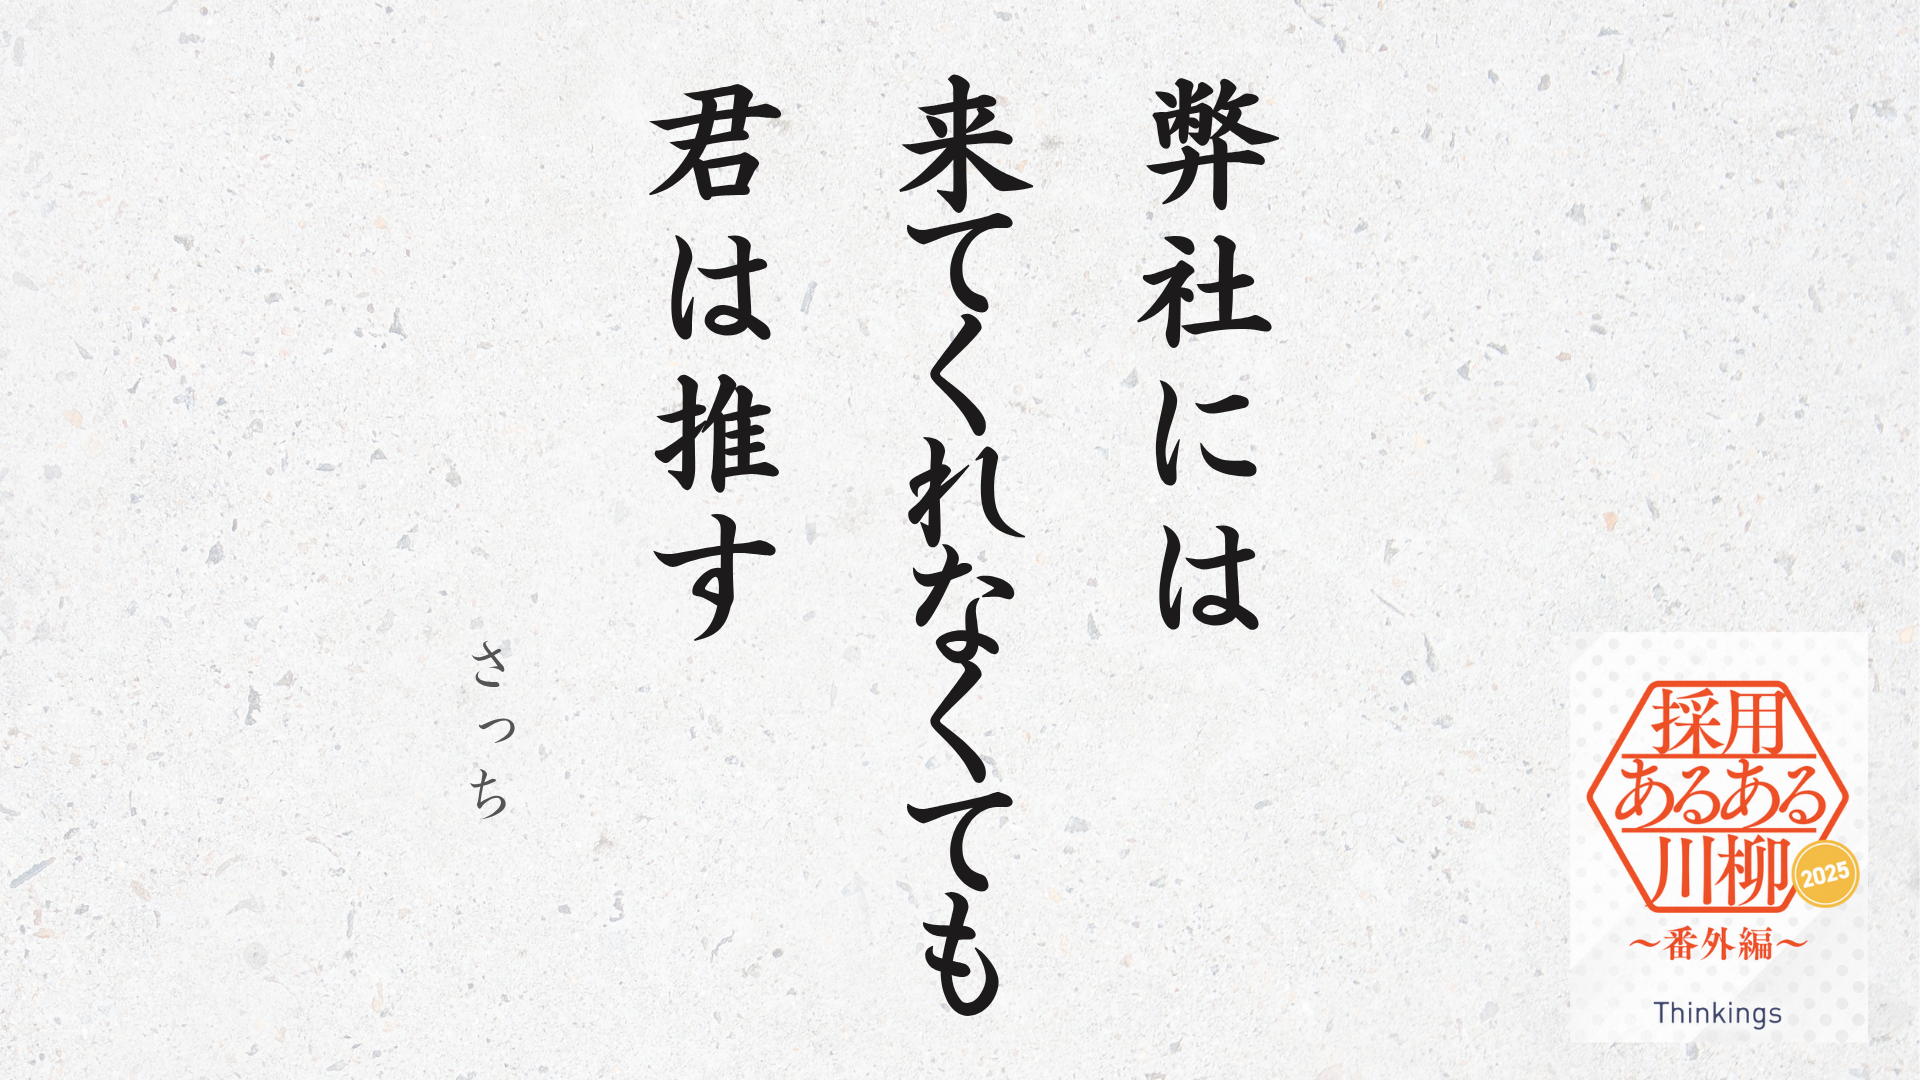 弊社には
来てくれなくても
君は推す
さっち
採用
あるある
川柳
2025
〜番外編〜
Thinkings